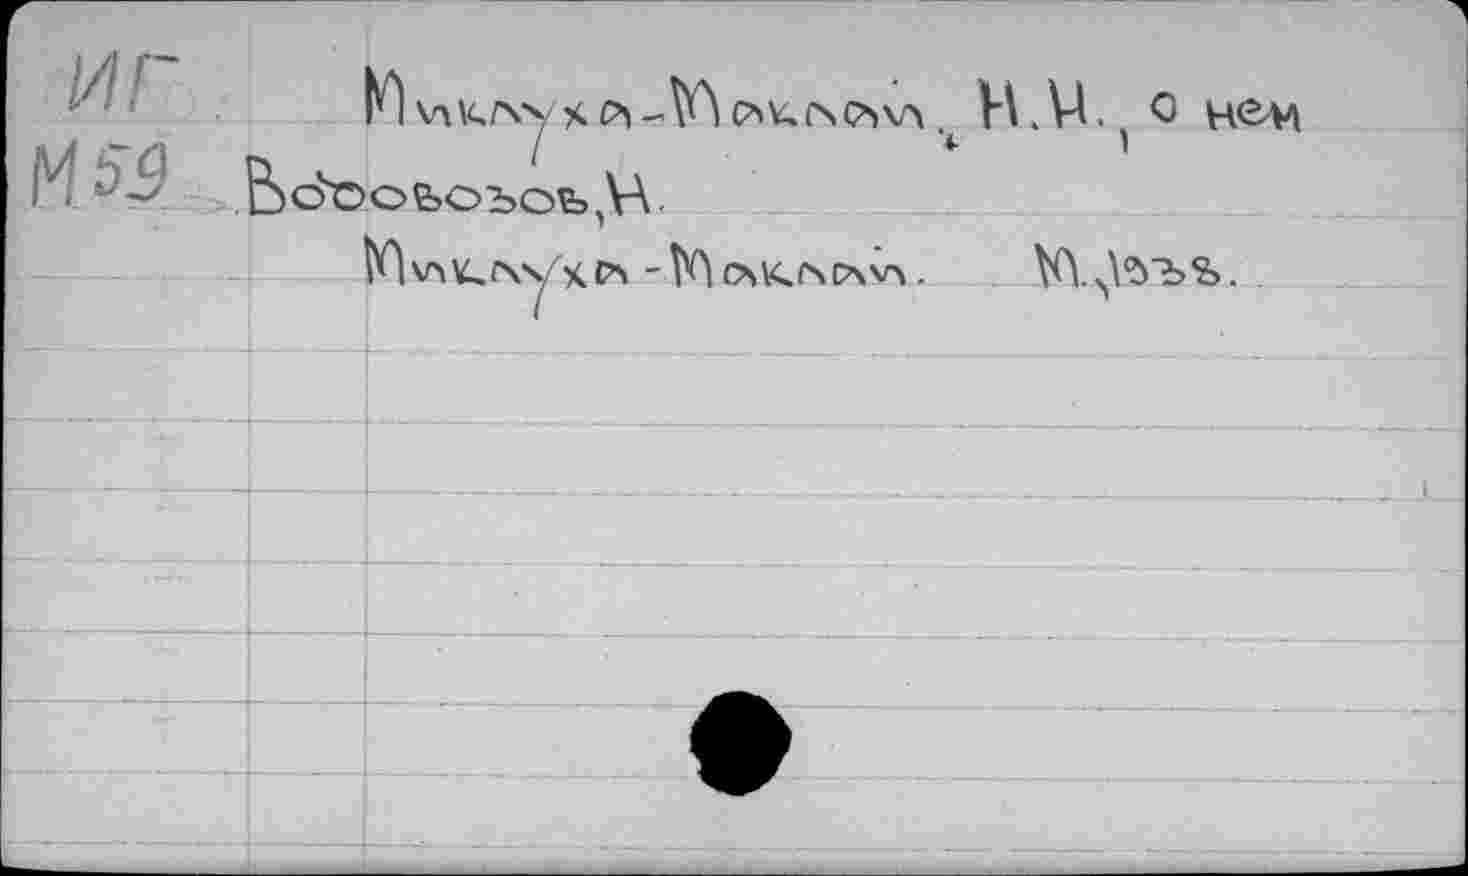 ИГ
М59
Миклуха-Маклай, Н.Н., о нем
Водовозов, Н.
Миклуха-Маклай. М., 1938.